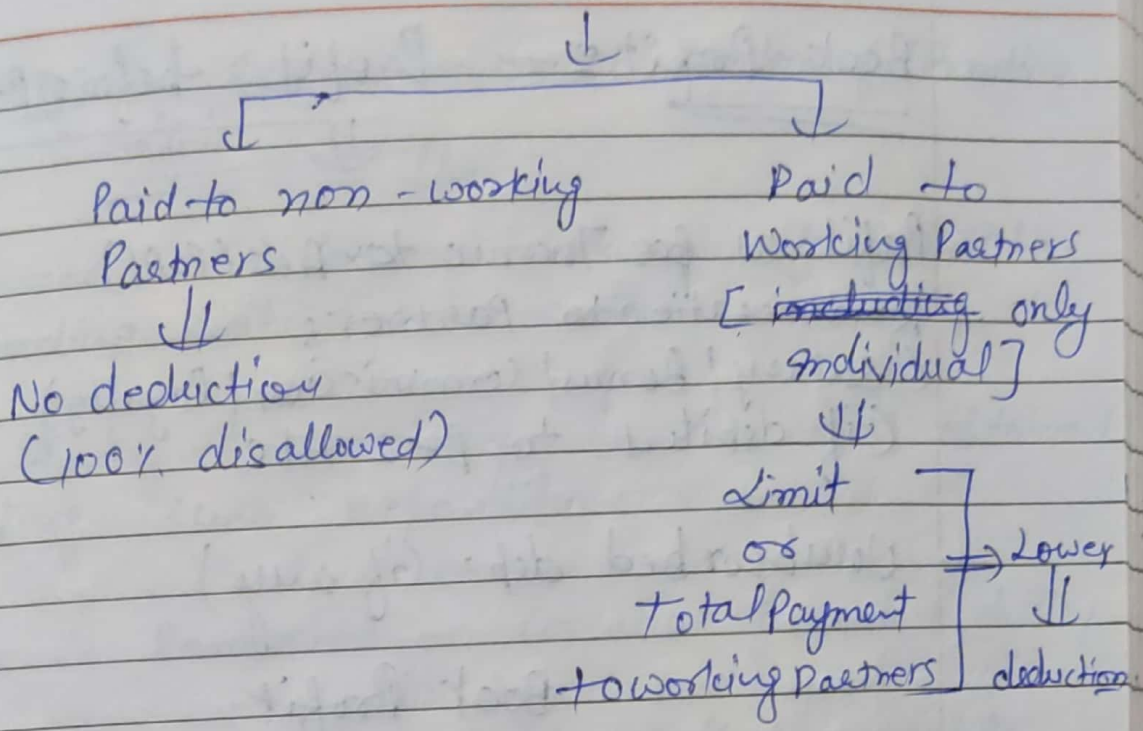 Paid to non-working
Partners
No deduction
(100% disallowed)
Paid to
Working Partners
[ including only
Individual]
Limit
or
Total Payment
to working Partners
Lower
deduction